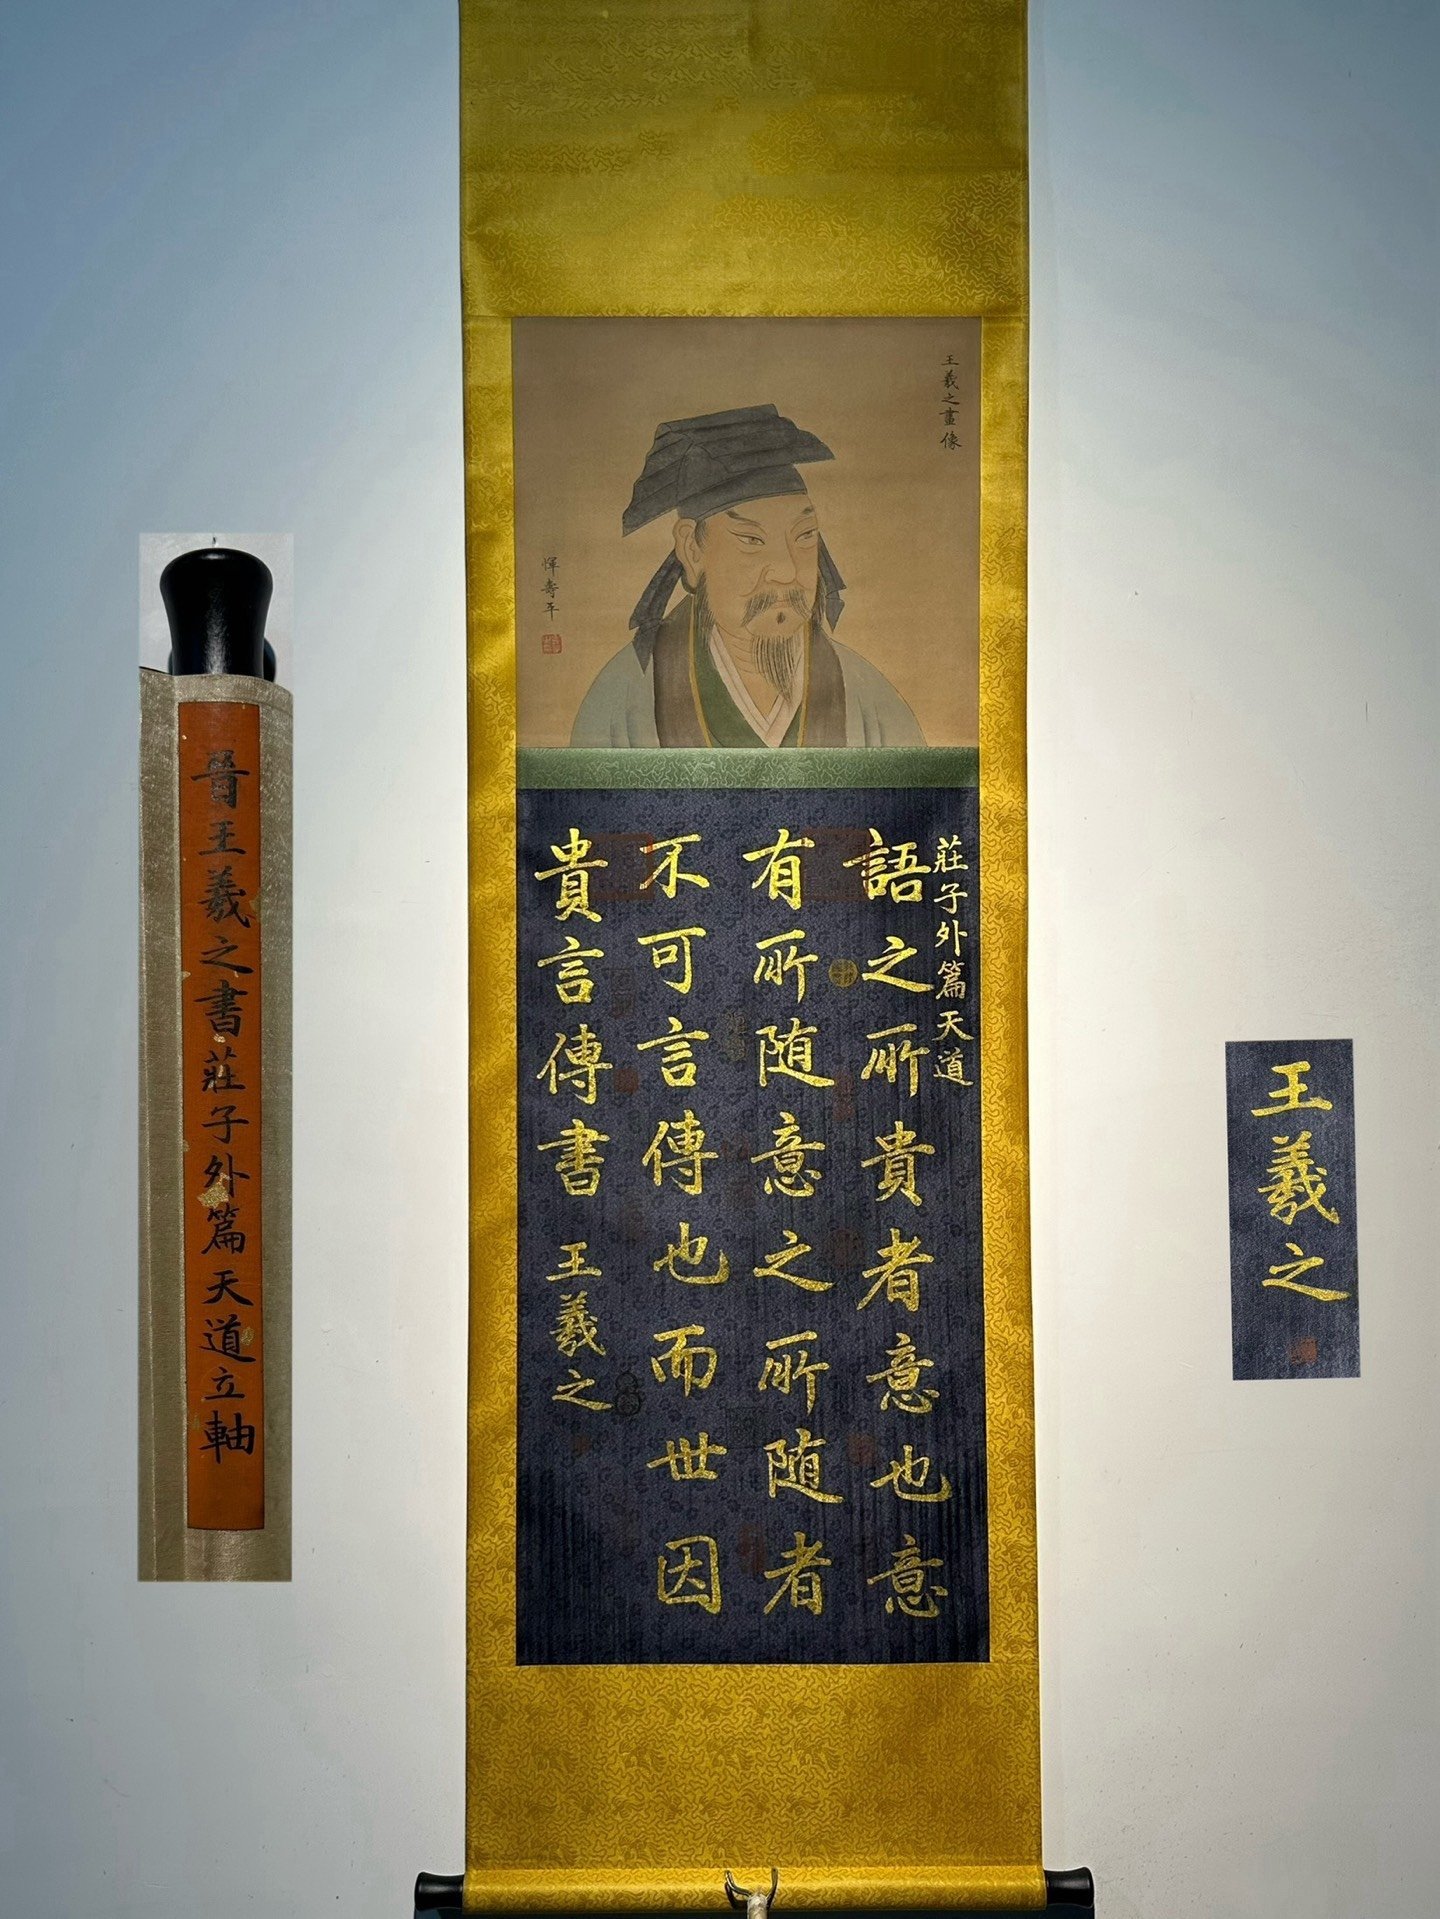 王羲之畫像
惲壽平
莊子外篇天道
語之所貴者意也意
有所随意之所随者
不可言傳也而世因
貴言傳書
王羲之
晉王羲之書莊子外篇天道立軸
王羲之